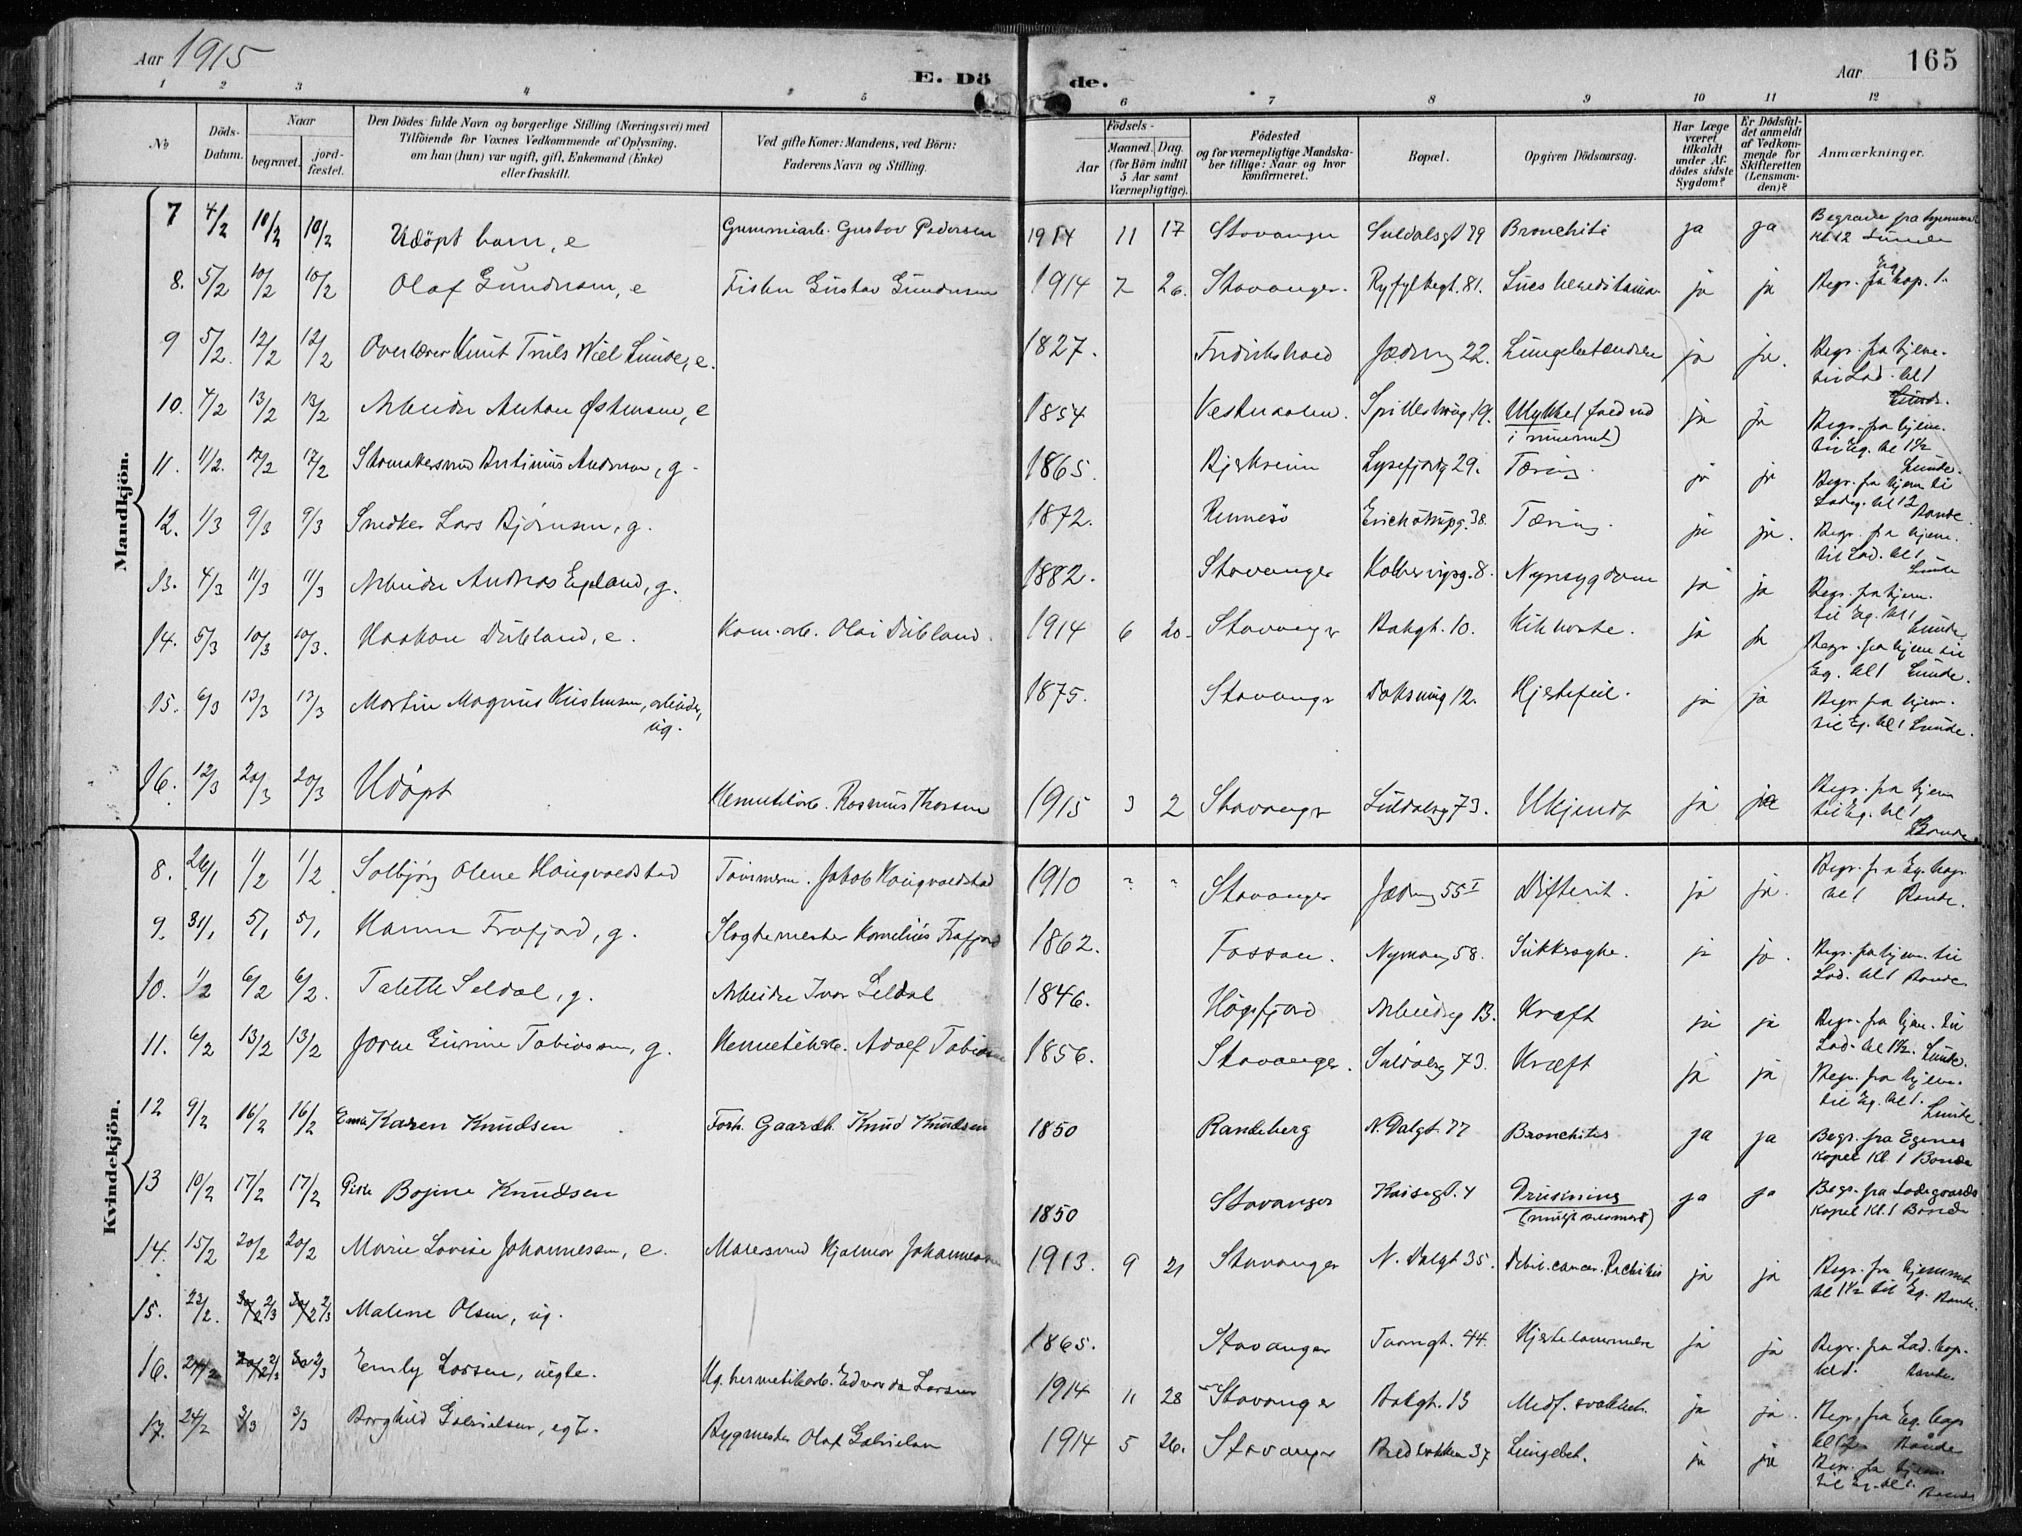 Aar 1915
E. Dö de.
Aar 165
1 2 3 4 5 6 7 8 9 10 11 12
No
Döds-Datum.
Naar
begravet.
jord-fæstet.
Den Dödes fulde Navn og borgerlige Stilling (Næringsvei) med
Tilföiende for Voxnes Vedkommende af Oplysning,
om han (hun) var ugift, gift, Enkemand (Enke)
eller fraskilt.
Ved gifte Koner: Mandens, ved Börn:
Faderens Navn og Stilling.
Födsels-
Aar
Maaned. Dag.
(for Børn indtil
5 Aar samt
Værnepligtige).
Födested
og for værnepligtige Mandska-
ber tillige: Naar og hvor
konfirmeret.
Bopæl.
Opgiven Dödsaarsag.
Har Læge
været
tilkaldt
under Af-
dödes sidste
Sygdom?
Er Dödsfal-
det anmeldt
af Vedkom-
mende for
Skifteretten
(Lensman-
den)?
Anmærkninger.
Mandkjön.
7 4/2 10/2 10/2 Udöpt barn, e Gummiarb. Gustav Pedersen 1914 11 17 Stavanger Suldalsgt 79 Bronchiti ja ja Begravet fra hjemmet Kl 12 Lunde
8. 5/2 10/2 10/2 Olaf Gundersen, e Fisker Gustav Gundersen 1914 7 26. Stavanger. Ryfylkegt. 81. Lues hereditaria ja ja Begr. fra Eg. kap. 1.
9 5/2. 12/2 12/2 Overlærer Knut Truls Wiel Lunde, e. 1827. Fredrikshald Jædervg 22. Lungebetændelse ja ja. Begr. fra hjem. til Lad. kl 1 Lunde.
10. 4/2 13/2 13/2 Arbeider Anton Østensen, e 1854 Vesteraalen. Spilderhaug 19. Ulykke (faldt ned i rummet) ja ja Begr. fra hjem. til Eg. kl 1 1/2 Lunde.
11. 11/2. 17/2 17/2 Skomakersvend Bertinius Andersen, g. 1865. Bjerkreim Lysefjordg 29. Tæring. ja ja Begr. fra hjem til Ladeg. kl 12 Bande.
12. 1/3 9/3 9/3 Snedker Lars Bjørnsen, g. 1872. Rennesö Erichstrupg. 38. Tæring. ja ja. Begr. fra hjem. til Lad. kl 1 Lunde
13. 4/3 11/3 11/3 Arbeider Andreas Egeland, g. 1882. Stavanger Kolbensvigsg. 8. Nyresygdom ja ja Begr. fra hjem. til Eg. kl 1 Lunde
14. 5/3 10/3 10/3. Haakon Dubland, e. Kom.arb. Olai Dubland. 1914 6 20. Stavanger Bakgt. 10. Kikhoste. ja ja Begr. fra hjem til Eg. kl 1 Lunde.
15. 6/3 13/3 13/3 Martin Magnus Kristensen, arbeider, ug. 1875. Stavanger Doksmug 12. Hjertefeil. ja ja Begr. fra hjem. til Eg. kl 1 Lunde.
16. 12/3 20/3 20/3 Udöpt Hermetikarb. Rasmus Thorsen 1915 3 2 Stavanger Suldalsg 73. Ukjendt ja ja Begr. fra hjem til Eg. kl 1 Bande
Kvindekjön.
8. 26/1 1/2 1/2 Solbjörg Olene Haugvaldstad Tømmerm. Jakob Haugvaldstad 1910 " " Stavanger Jædervg 55 I Difterit. ja ja. Begr. fra Eg. kap. kl 1 Bande.
9. 31/1 5/1 5/1 Hanna Frafjord, g. Slagtermester Kornelius Frafjord 1862. Fossan. Nymansg 58. Sukkersyge. ja ja. Begr. fra hjem. til Lad. kl 1 Bande.
10. 1/2 6/2 6/2. Talette Seldal, g. Arbeider Ivar Seldal 1846. Høgsfjord Arbeiderg 13. Kræft ja ja Begr. fra hjem. til Lad. kl 1 1/2. Lunde.
11. 6/2 13/2 13/2 Jorine Gurine Tobiassen, g. Hermetikarb. Adolf Tobiassen 1856. Stavanger. Suldalsg 73. Kræft ja ja Begr. fra hjem. til Eg. kl 1. Lunde.
12 9/2 16/2 16/2 Enke Karen Knudsen Forh. Gaardb. Knud Knudsen 1850 Randeberg N. Dalgt. 77 Bronchites ja ja Begr. fra Egenes Kapel Kl. 1 Bonde
13 10/2 17/2 17/2 Pike Bogine Knudsen 1850 Stavanger Kaisegt. 4 Drukning (muligt selvmord) ja ja Begr. fra Ladegaards Kapel Kl. 1 Bonde
14. 15/2 20/2 20/2 Marie Lovise Johannesen, e. Malersvend Hjalmar Johannesen 1913. 9 21 Stavanger N. Dalgt 35. Debil. cancer. Rachitis ja ja Begr. fra hjemmet kl 1 1/2 til Eg. Bande.
15. 23/2. 2/3 2/3 Malene Olsen, ug. 1865. Stavanger Taarngt. 44. Hjertelammelse ja ja Begr. fra Lad. kap. kl 1. Bande
16. 24/2 2/3 2/3 Emly Larsen, uegte. Ug. hermetikarb. Edvarda Larsen 1914 11 28 Stavanger Bakgt. 13 Medf. svakhet. ja ja. Begr. fra Eg. kap kl 12 Bande
17. 24/2 3/3 3/3 Borghild Gabrielsen, egt. Bygmester Olaf Gabrielsen 1914 5 26. Stavanger Bredbakken 37 Lungebet. ja ja Begr. fra hjem til Eg. kl 1. Bande